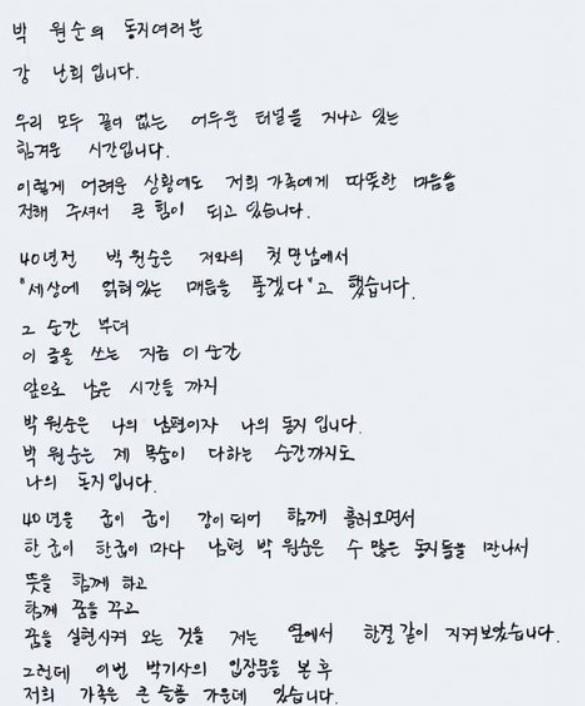 박 원순의 동지여러분
강 난희입니다.
우리 모두 끝이 없는 어두운 터널을 지나고 있는
힘겨운 시간입니다.
이렇게 어려운 상황에도 저희 가족에게 따뜻한 마음을
전해 주셔서 큰 힘이 되고 있습니다.
40년전 박원순은 저와의 첫만남에서
"세상에 얽혀있는 매듭을 풀겠다"고 했습니다.
그 순간 부터
이 글을 쓰는 지금 이 순간
앞으로 남은 시간들 까지
박원순은 나의 남편이자 나의 동지 입니다.
박 원순는 제 목숨이 다하는 순간까지도
나의 동지입니다.
40년을 굽이 굽이 강이되어 함께 흘러오면서
한 굽이 한굽이 마다 남편 박 원순은 수 많은 동지들을 만나서
뜻을 함께 하고
함께 꿈을 꾸고
꿈을 실현시켜 오는 것을 저는 옆에서 한결같이 지켜보았습니다.
그런데 이번 박기사의 입장문을 본 후
저희 가족은 큰 슬픔 가운데 있습니다.